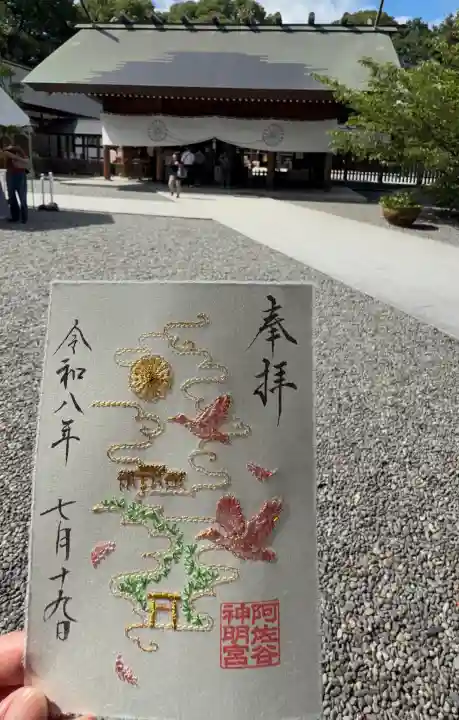 奉拝
令和八年 七月十九日
阿佐谷
神明宮